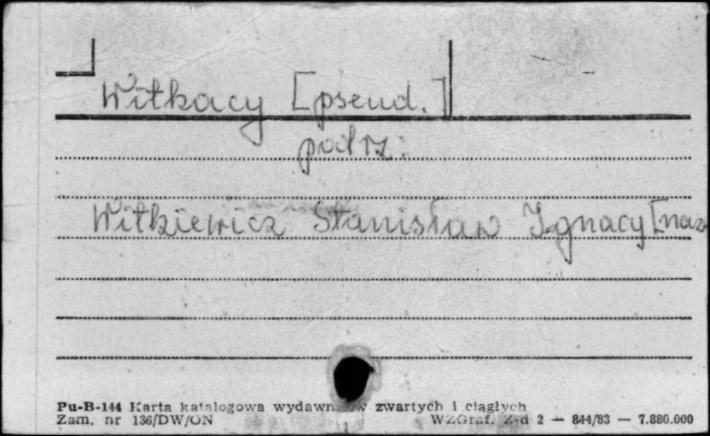 Witkacy [pseud.]
podrz.
Witkiewicz Stanisław Ignacy [naz
Pu-B-144 Karta katalogowa zwartych i ciągłych
Zam. nr 136/DW/ON WZGraf. Z-d 2 — 844/83 — 7.880.000